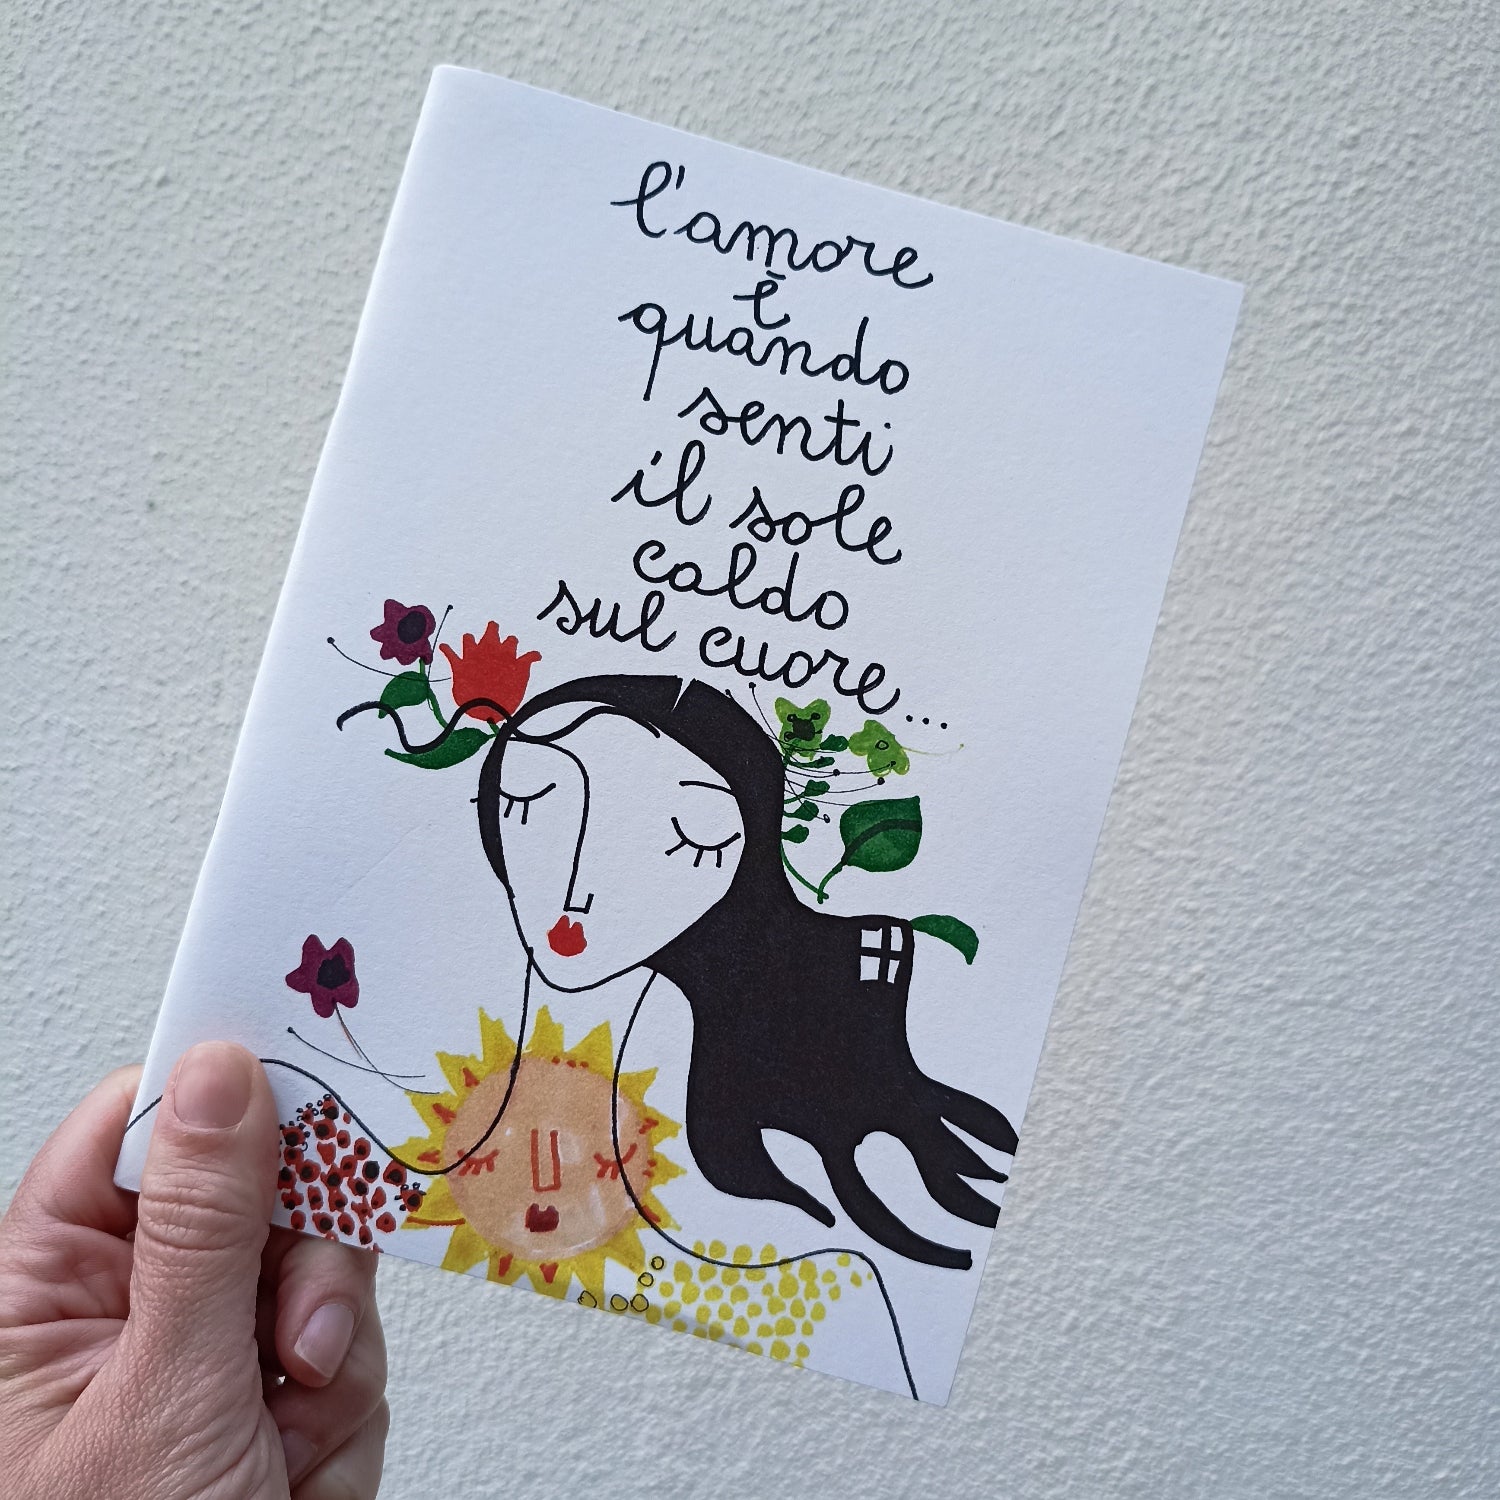 l'amore
è
quando
senti
il sole
caldo
sul cuore...